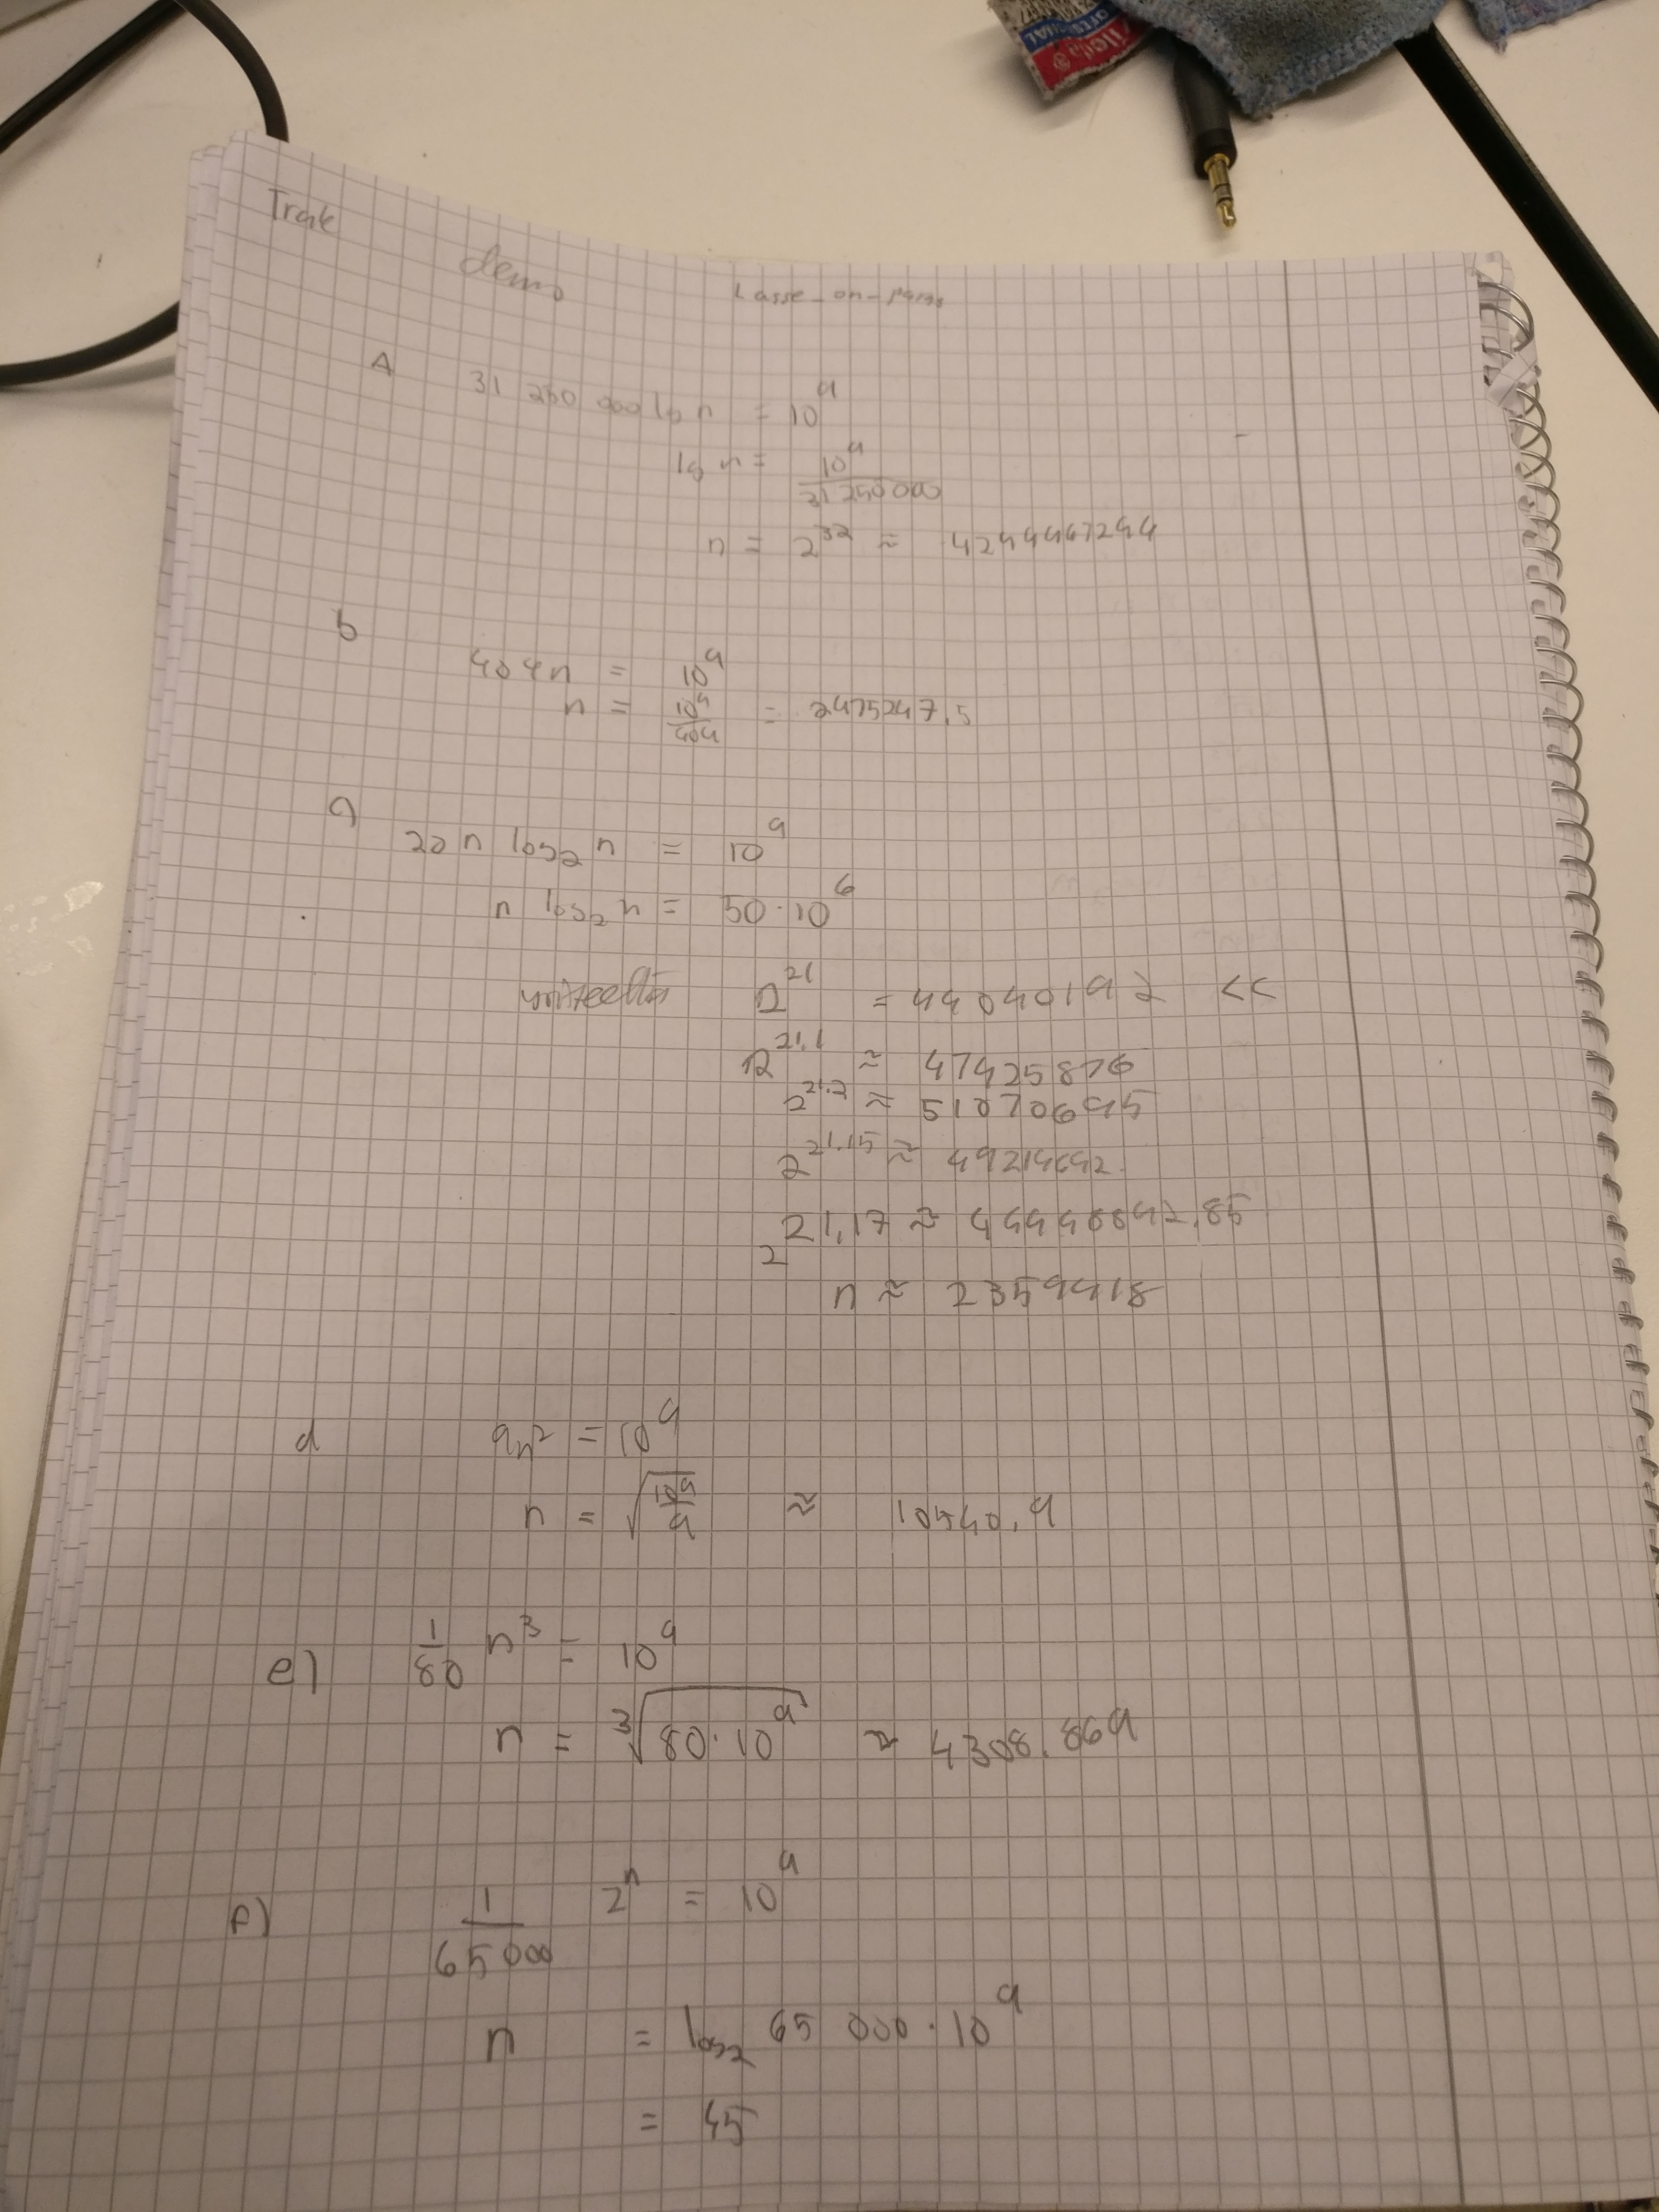 Trak
demo
Lasse_on_paras
A 31 250 000 lg n = 10^9
lg n = 10^9 / 31 250 000
n = 2^32 ≈ 4294967294
b
404n = 10^9
n = 10^9 / 404 = 2475247.5
c)
20 n log₂ n = 10^9
n log₂ n = 50·10^6
2^21 = 44040192 <<
2^21.1 ≈ 47425876
2^21.2 ≈ 51070695
2^21.15 ≈ 49214692
2^21,17 ≈ 49948892.85
n ≈ 2359418
d 9n² = 10^9
n = √(10^9 / 9) ≈ 10540.9
e) 1/80 n³ = 10^9
n = ³√(80·10^9) ≈ 4308.869
f) 1/65000 2^n = 10^9
n = log₂ 65 000·10^9
= 45